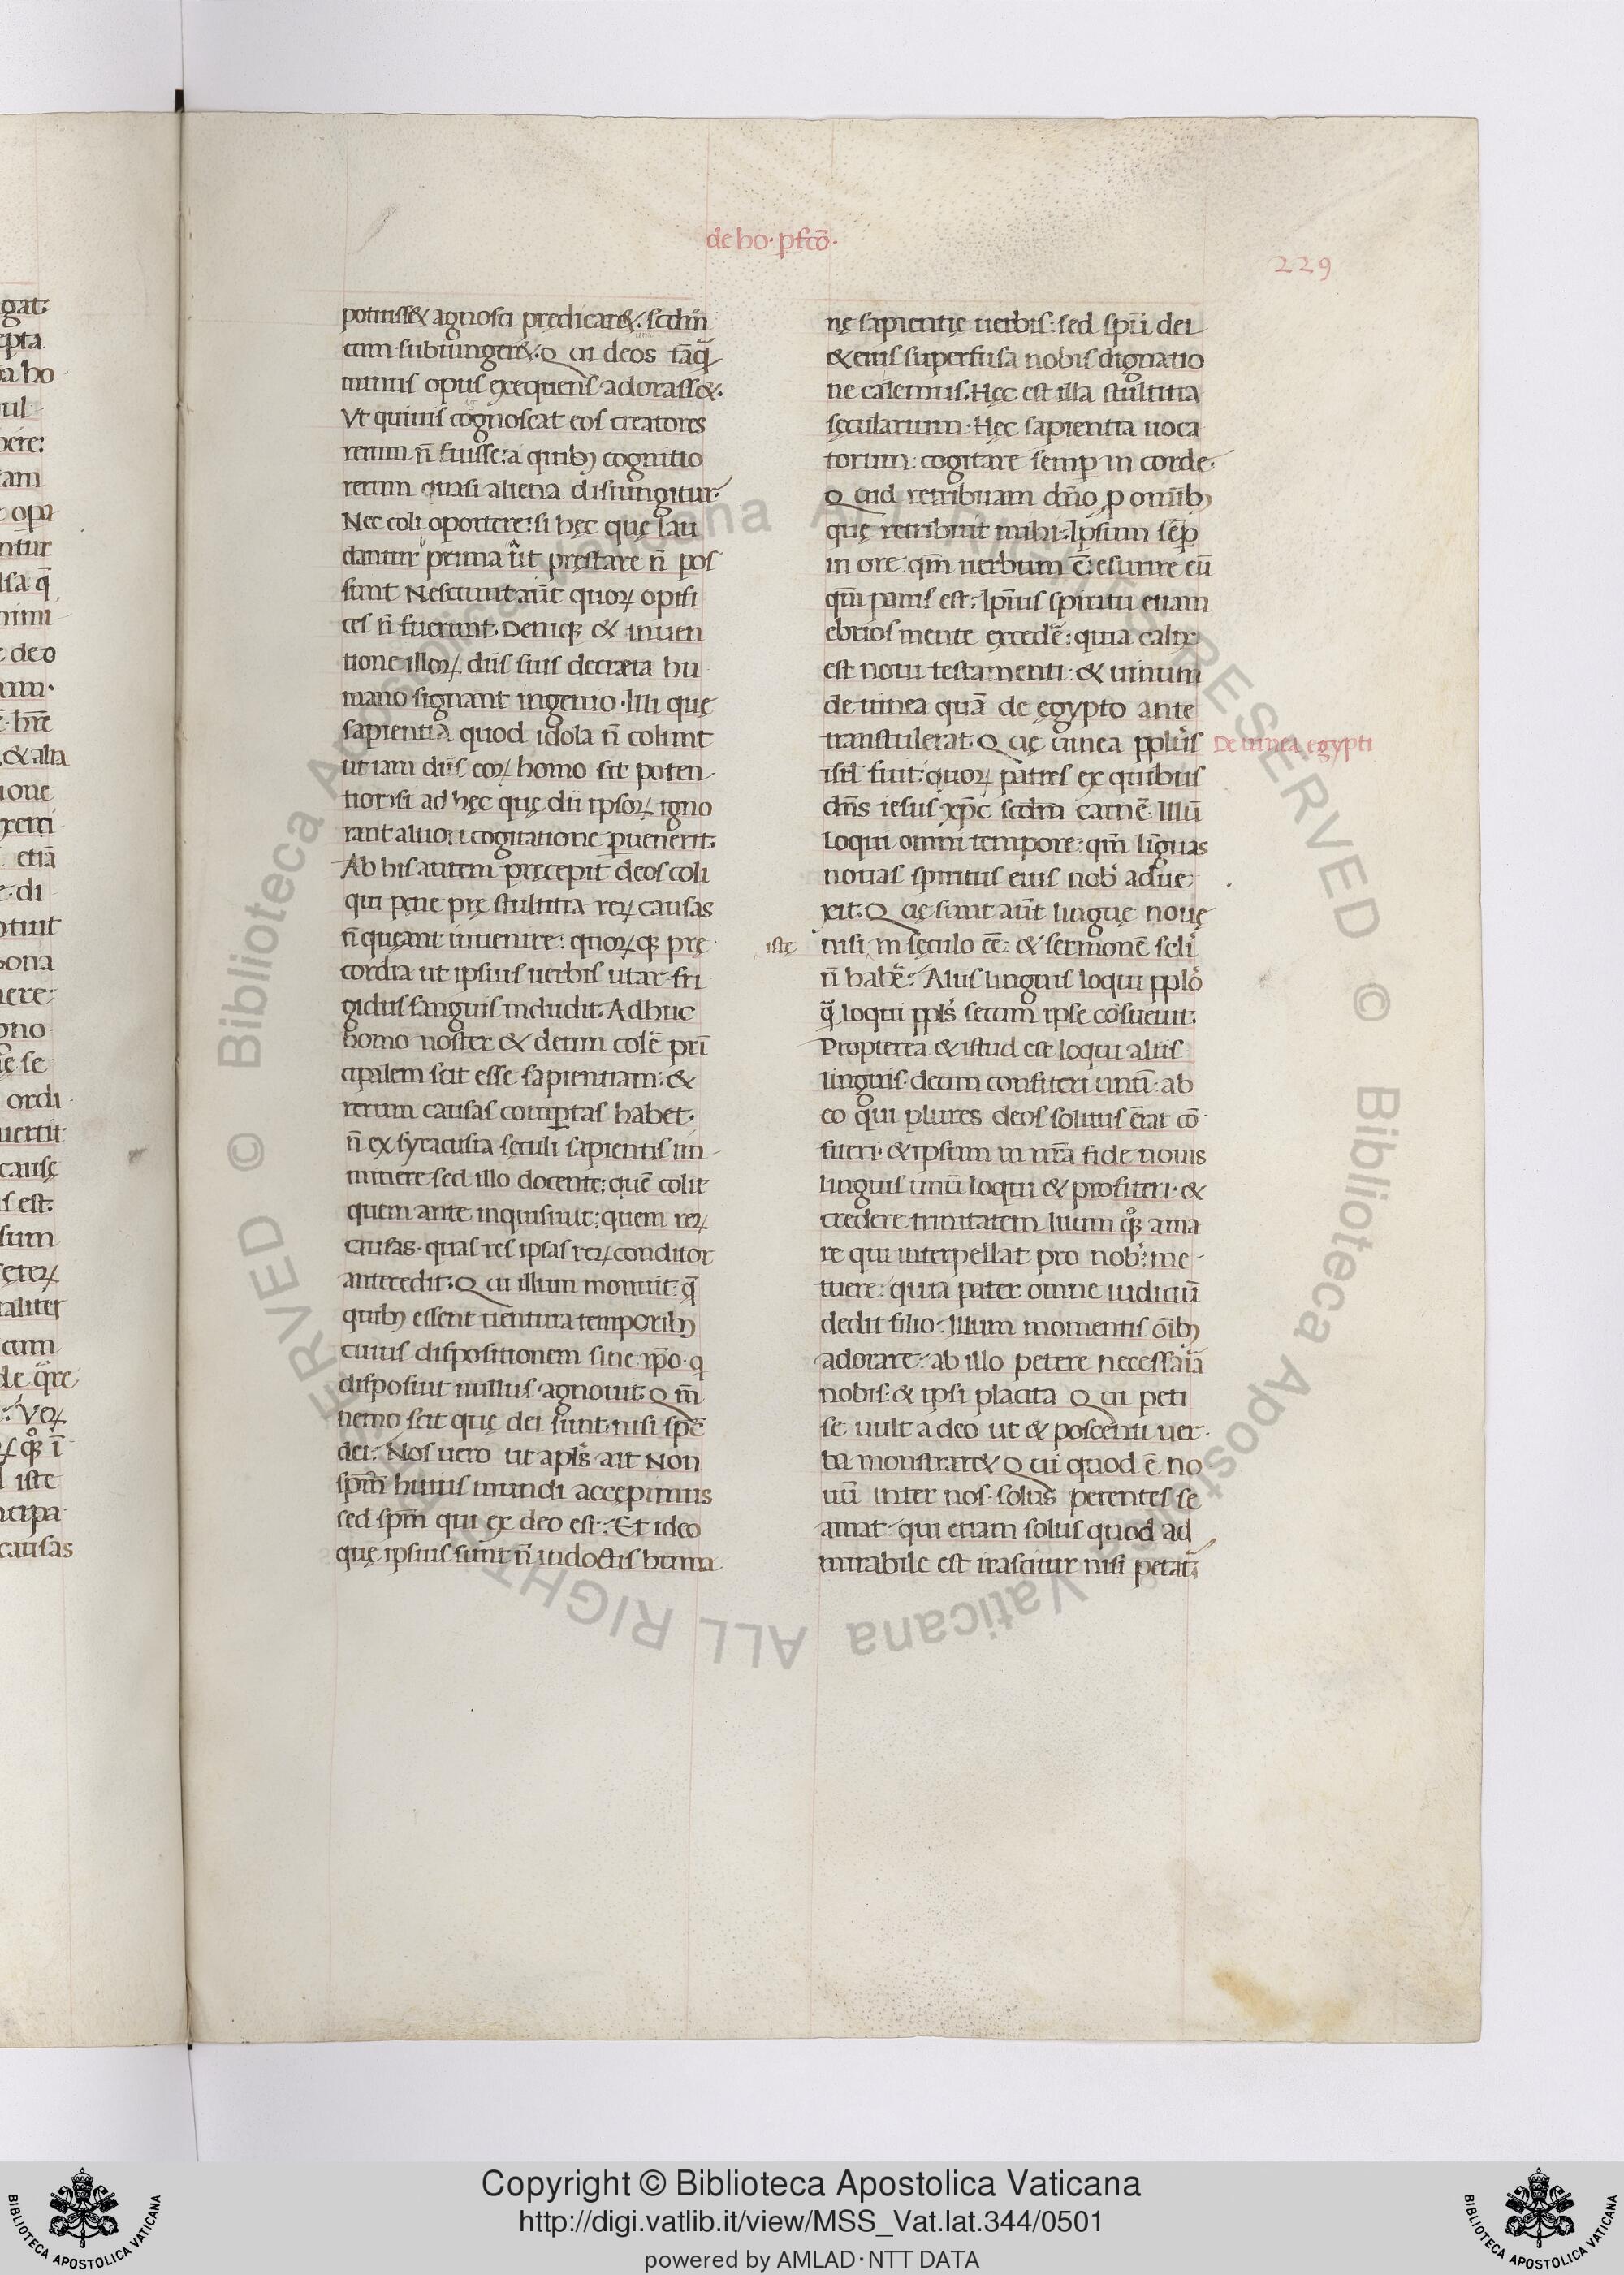 de ho· ꝑfcō·
229
potuiss& agnosci prędicar&. scdm̄
eam subiunger&. Qui deos tāq̄
minus opus exequens adorass&.
Vt quiuis cognoscat eos creatores
rerum n̄ fuisse: a quibꝫ cognitio
rerum quasi aliena disiungitur.
Nec coli oportere: si hęc quę lau
dantur prima ut pręstare n̄ pos
sunt Nesciunt aūt quoꝝ opifi
ces n̄ fuerunt. Deniqꝫ & inuen
tione illoꝝ diis suis decreta hu
mano signant ingenio. Illi quę
sapientiā quod idola n̄ colunt
ut iam diis eoꝝ homo sit poten
tior: si ad hęc quę dii ipsoꝝ igno
rant altiori cogitatione ꝑuenerit.
Ab his autem pręcepit deos coli
qui pęne prę stultitia reꝝ causas
n̄ quęant inuenire: quoꝝqꝫ prę
cordia ut ipsius uerbis utar fri
gidus sanguis includit. Adhuc
homo noster & deum colē prī
cipalem scit esse sapientiam: &
rerum causas comꝑtas habet.
n̄ ex syracusia sęculi sapientis im
munere sed illo docente: quē colit
quem ante inquisiuit: quem reꝝ
causas· quas res ipsas reꝝ conditor
antecedit. Qui illum monuit: q̄
quibꝫ essent uentura temporibꝫ
cuius dispositionem sine ip̄o· q
disposuit nullus agnouit. Qm̄
nemo scit quę dei sunt· nisi spc̄
dei. Nos uero ut apls̄ ait Non
spm̄ huius mundi accępimus
sed spm̄ qui ex deo est. Et ideo
quę ipsius sunt n̄ in doctis huma
nę sapientię uerbis: sed spū dei
& eius superfusa nobis dignatio
ne calemus. Hęc est illa stultitia
sęcularium. Hęc sapientia uoca
torum: cogitare semꝑ in corde.
Quid retribuam dño ꝓ omībꝫ
quę retribuit mihi. Ipsum sēꝑ
in ore qm̄ uerbum ē: esurire eū
qm̄ panis est. Ipsius spiritu etiam
ebrios mente excedē: quia calix
est noui testamenti· & uinum
de uinea quā de ęgypto ante
transtulerat. Quę uinea pplus
De uinea egypti
isrl fuit: quoꝝ patres ex quibus
dn̄s iesus xp̄c scdm carnē. Illū
loqui omni tempore: qm̄ linguas
nouas spiritus eius nob̄ adue
xit. Quę sunt aūt linguę nouę
istę
nisi in sęculo eē: & sermonē scli
n̄ habē. Aliis linguis loqui pplō
q̄ loqui ppls secum ipse cōsueuit.
Propterea & istud est loqui aliis
linguis· deum confiteri unū: ab
eo qui plures deos solitus erat cō
fiteri· & ipsum in nr̄a fide nouis
linguis unū loqui & profiteri· &
credere trinitatem unum qꝫ ama
re qui interpellat pro nob̄: me
tuere: quia pater omne iudiciū
dedit filio. Illum momentis ōibꝫ
adorare: ab illo petere necessaria
nobis· & ipsi placita Qui peti
se uult a deo ut & poscenti uer
ba monstrar& Qui quod ē no
uū inter nos· solus petentes se
amat: qui etiam solus quod ad
mirabile est irascitur nisi petat.
gat:
epta
a ho
uil
bere:
tam
opa
ntur
isa q̄
nimi
deo
am·
hrē
& alia
ione
xeri
etiā
di
otuit
bona
nere
gno
se
ordi
uertit
causę
s est.
sum
ceteꝝ
taliter
cum
de q̄re
Veꝝ
iste
ncipa
causas
© Biblioteca Apostolica Vaticana ALL RIGHTS RESERVED
© Biblioteca Apostolica Vaticana ALL RIGHTS RESERVED
Copyright © Biblioteca Apostolica Vaticana
http://digi.vatlib.it/view/MSS_Vat.lat.344/0501
powered by AMLAD·NTT DATA
BIBLIOTECA APOSTOLICA VATICANA
BIBLIOTECA APOSTOLICA VATICANA